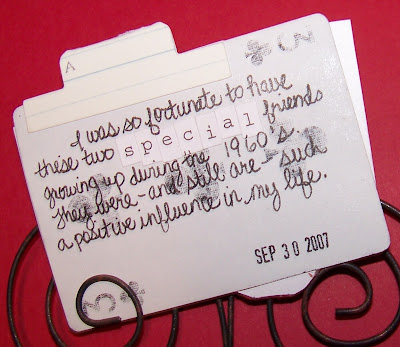 A
3
I was so fortunate to have
these two special friends
growing up during the 1960's
They were - and still are - such
a positive influence in my life.
SEP 30 2007
3